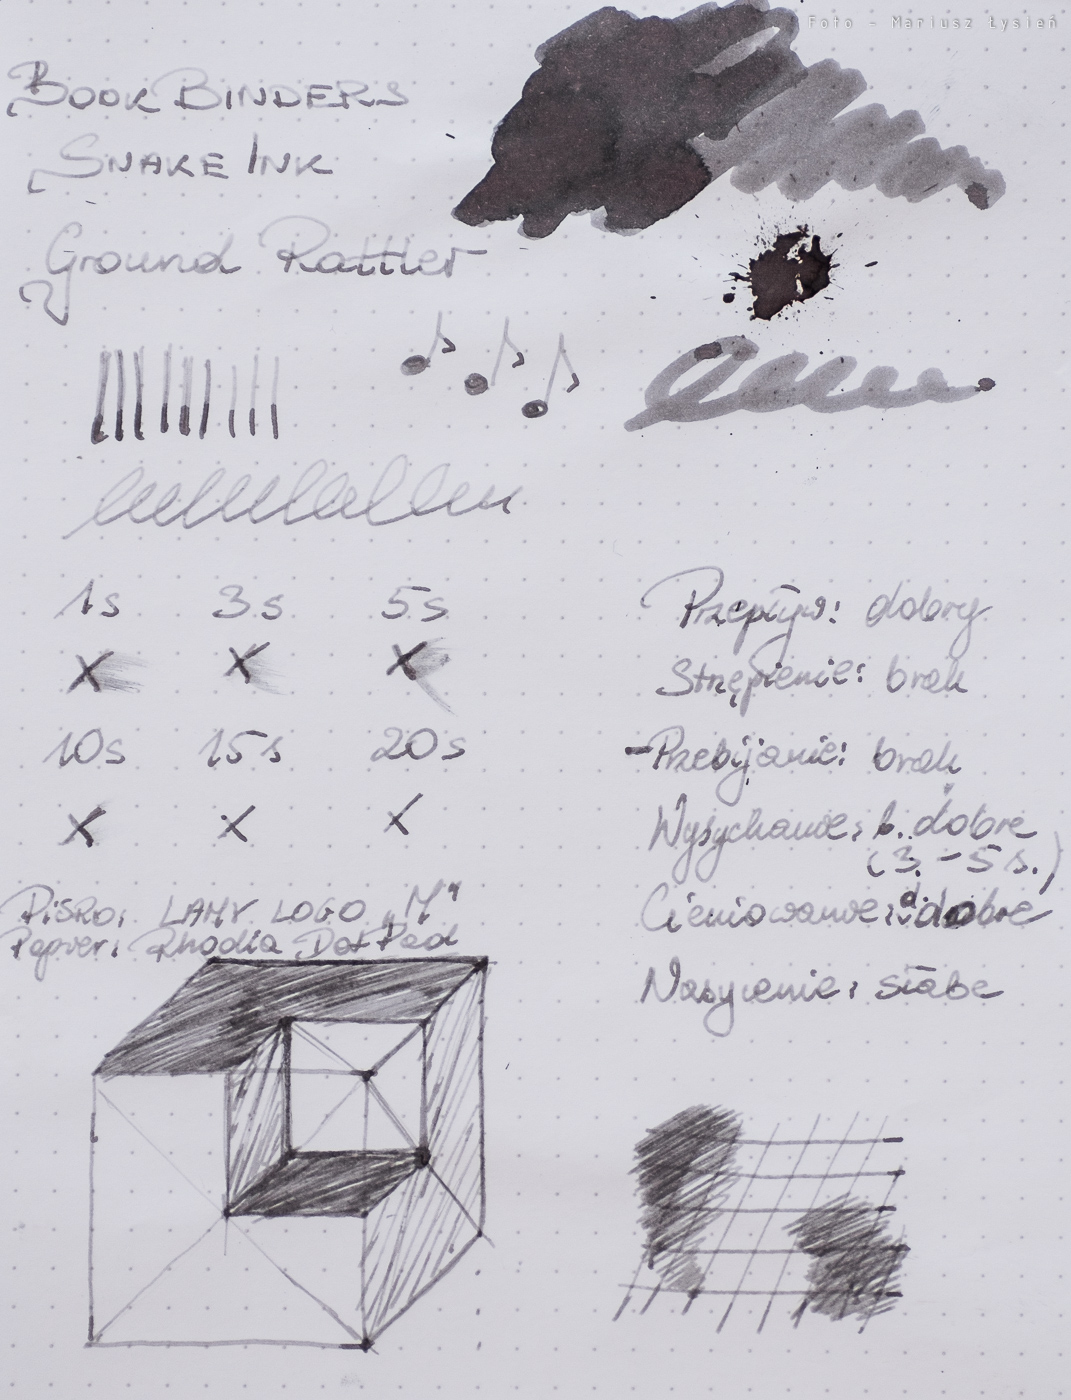 Foto - Mariusz Łysień
BookBinders
Snake Ink
Ground Rattler
1s 3s 5s
10s 15s 20s
Przepływ: dobry
Strzępienie: brak
Przebijanie: brak
Wysychanie: b. dobre
(3 - 5 s.)
Cieniowanie: dobre
Nasycenie: słabe
Pióro: LAMY LOGO „M"
Papier: Rhodia Dot Pad